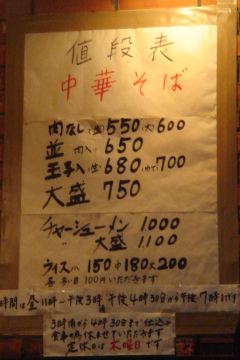 値段表
中華そば
肉なし(並)550(大)600
並 肉入り 650
玉子入(生)680(ゆで)700
大盛 750
チャーシューメン 1000
〃 大盛 1100
ライス小150中180大200
100円いただきます
時間は昼11時〜午後3時 午後4時30分から午後7時までです
3時頃から4時30分まで仕込み
食事の為休ませていただきます
定休日は木曜日です